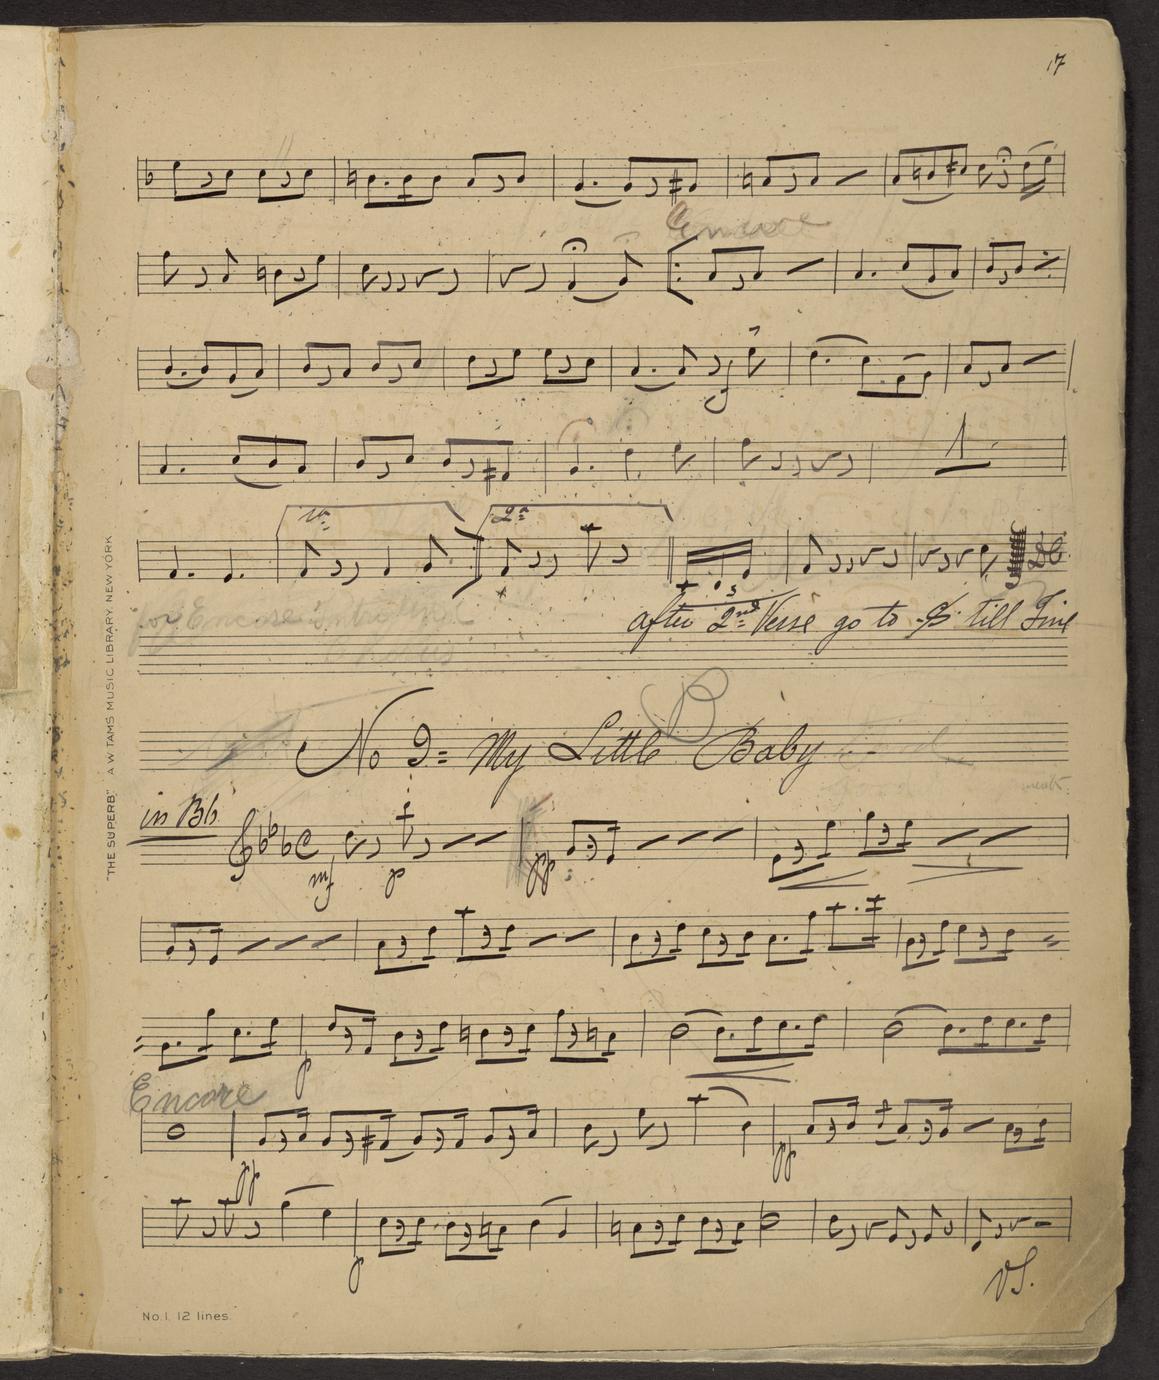 17
Encore
1
1a
2a
DC
for Encore
after 2nd Verse go to 𝄋 till Fine
B
No 9 = My Little Baby
in Bb
mf p pp
p
Encore
pp pp
p
VS.
No. 1. 12 lines.
"THE SUPERB" A W TAMS MUSIC LIBRARY, NEW YORK